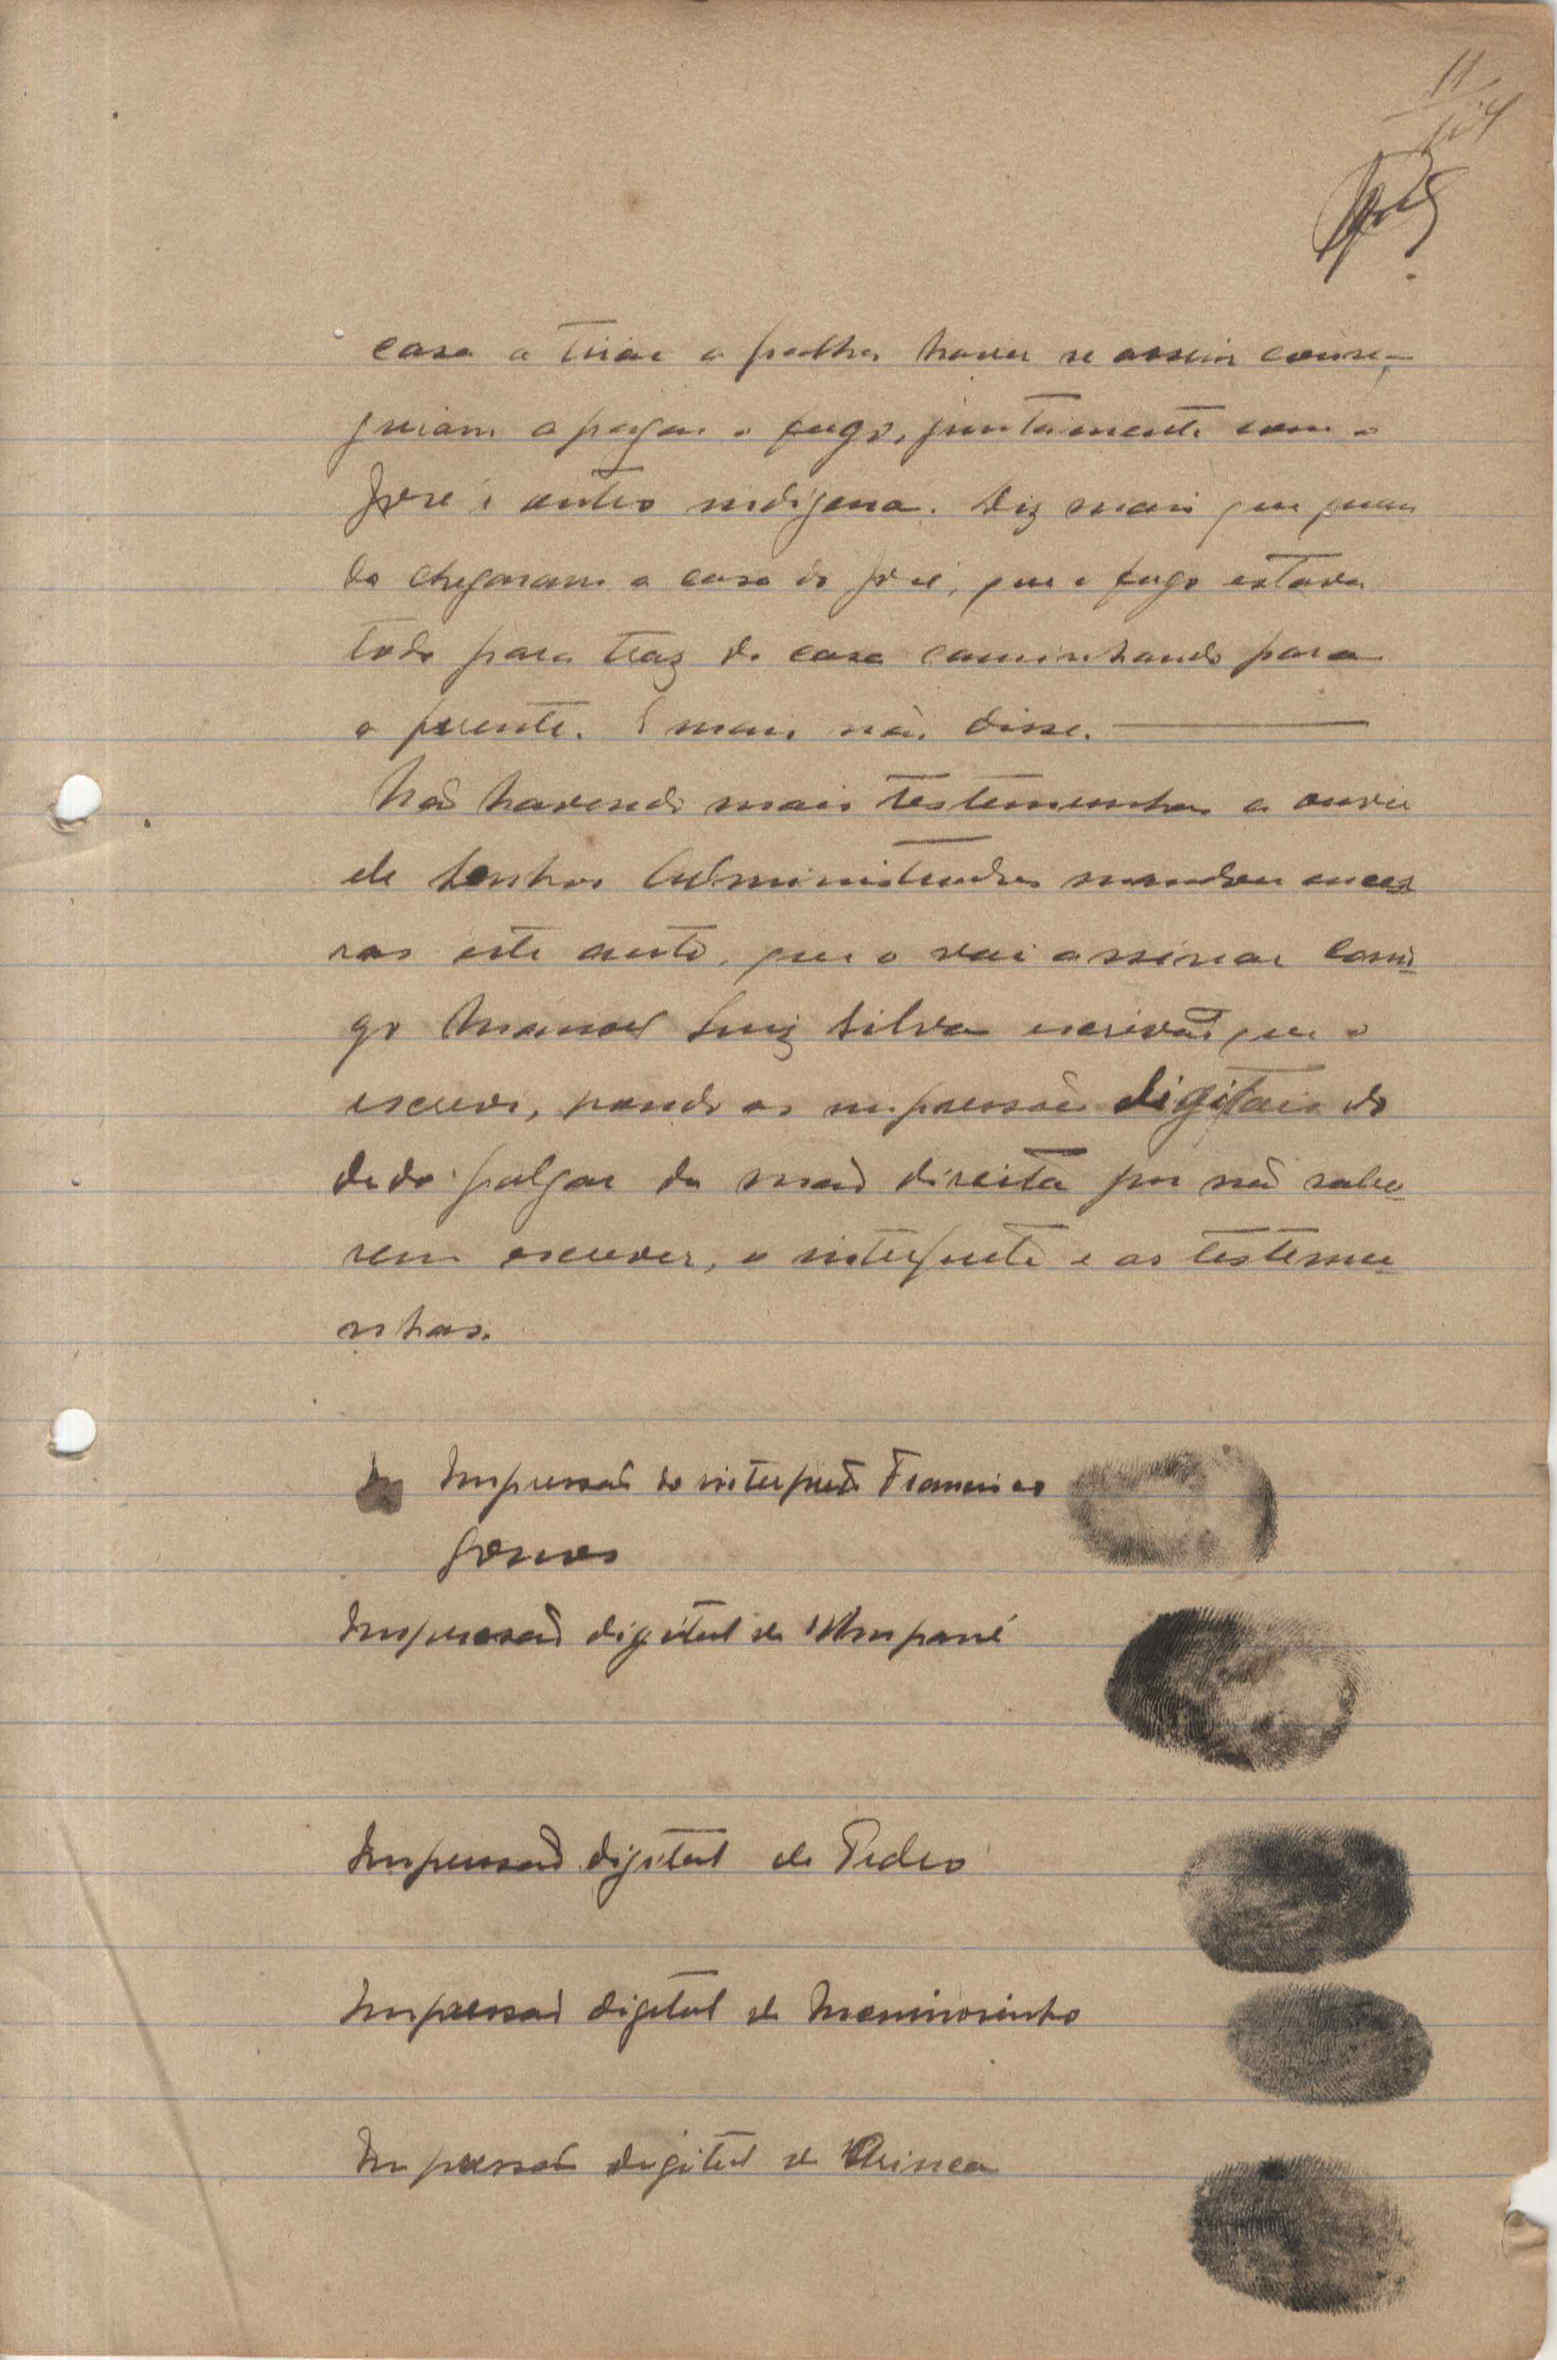 11
casa a tirar a palha haver se assim conse-
guiam apagar o fogo, juntamente com o
José e outro indigena. Diz mais que quan
do chegaram a casa do José, que o fogo estava
todo para traz da casa caminhando para
a frente. E mais não disse.
Não havendo mais testemunhas a ouvir
ele Senhor Administrador mandou encer
rar este auto, que o vai assinar comi-
go Manoel Luiz Silva escrivão que o
escrevi, pondo as impressões digitais do
dedo polgar da mão direita por não sabe-
rem escrever, o interprete e as testemu-
nhas.
Impressão do interprete Francisco
Gomes
Impressão digital de
Impressão digital de Pedro
Impressão digital de Meninosinho
Impressão digital de